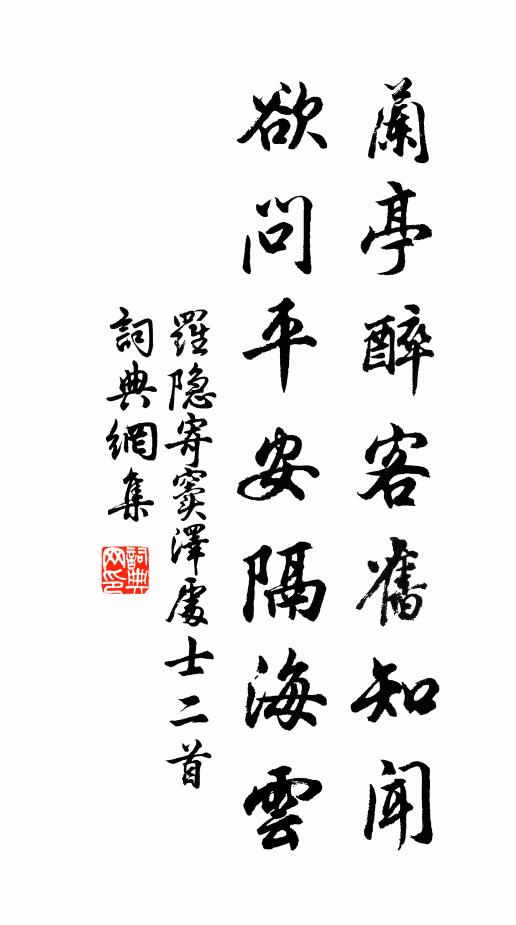 蘭亭醉客舊知聞
欲問平安隔海雲
羅隐寄竇澤處士二首
詞典網集
詞典网印